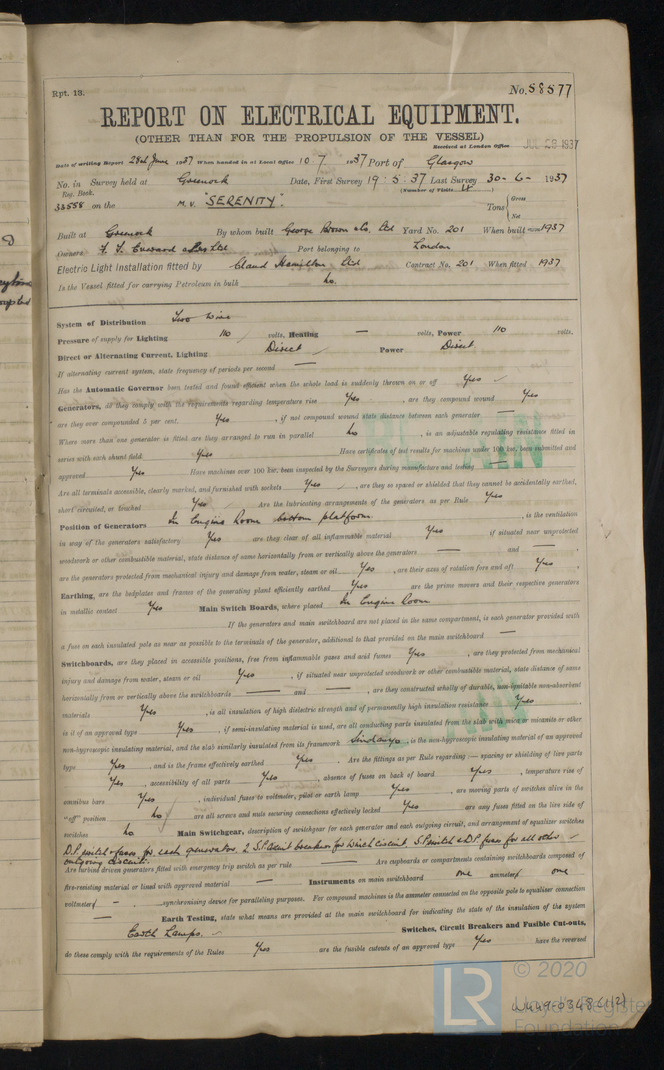 Rpt. 13. No. 58577
REPORT ON ELECTRICAL EQUIPMENT.
(OTHER THAN FOR THE PROPULSION OF THE VESSEL)
Received at London Office JUL 28 1937
Date of writing Report 28th June 1937 When handed in at Local Office 10.7.1937 Port of Glasgow
No. in Survey held at Greenock Date, First Survey 19.5.37 Last Survey 30-6-1937
Reg. Book. (Number of Visits
33558 on the M.V. "SERENITY" Tons Gross Net
Built at Greenock By whom built George Brown & Co. Ltd Yard No. 201 When built 1937
Owners F. T. Everard & Sons Ltd Port belonging to London
Electric Light Installation fitted by Claud Hamilton, Ltd Contract No. 201 When fitted 1937
Is the Vessel fitted for carrying Petroleum in bulk No.
System of Distribution Two wire
Pressure of supply for Lighting 110 volts, Heating — volts, Power 110 volts.
Direct or Alternating Current, Lighting Direct Power Direct
If alternating current system, state frequency of periods per second —
Has the Automatic Governor been tested and found efficient when the whole load is suddenly thrown on or off Yes
Generators, do they comply with the requirements regarding temperature rise Yes, are they compound wound Yes
are they over compounded 5 per cent. Yes, if not compound wound state distance between each generator —
Where more than one generator is fitted are they arranged to run in parallel No, is an adjustable regulating resistance fitted in
series with each shunt field Yes Have certificates of test results for machines under 100 kw. been submitted and
approved Yes Have machines over 100 kw. been inspected by the Surveyors during manufacture and testing —
Are all terminals accessible, clearly marked, and furnished with sockets Yes, are they so spaced or shielded that they cannot be accidentally earthed,
short circuited, or touched Yes Are the lubricating arrangements of the generators as per Rule Yes
Position of Generators In Engine Room bottom platform, is the ventilation
in way of the generators satisfactory Yes are they clear of all inflammable material Yes if situated near unprotected
woodwork or other combustible material, state distance of same horizontally from or vertically above the generators — and —
are the generators protected from mechanical injury and damage from water, steam or oil Yes, are their axes of rotation fore and aft Yes
Earthing, are the bedplates and frames of the generating plant efficiently earthed Yes are the prime movers and their respective generators
in metallic contact Yes Main Switch Boards, where placed In Engine Room
If the generators and main switchboard are not placed in the same compartment, is each generator provided with
a fuse on each insulated pole as near as possible to the terminals of the generator, additional to that provided on the main switchboard —
Switchboards, are they placed in accessible positions, free from inflammable gases and acid fumes Yes, are they protected from mechanical
injury and damage from water, steam or oil Yes, if situated near unprotected woodwork or other combustible material, state distance of same
horizontally from or vertically above the switchboards — and —, are they constructed wholly of durable, non-ignitable non-absorbent
materials Yes, is all insulation of high dielectric strength and of permanently high insulation resistance Yes
is it of an approved type Yes, if semi-insulating material is used, are all conducting parts insulated from the slab with mica or micanite or other
non-hygroscopic insulating material, and the slab similarly insulated from its framework Sindanyo, is the non-hygroscopic insulating material of an approved
type Yes, and is the frame effectively earthed Yes. Are the fittings as per Rule regarding :— spacing or shielding of live parts
Yes, accessibility of all parts Yes, absence of fuses on back of board Yes, temperature rise of
omnibus bars Yes, individual fuses to voltmeter, pilot or earth lamp Yes, are moving parts of switches alive in the
"off" position No are all screws and nuts securing connections effectively locked Yes are any fuses fitted on the live side of
switches No Main Switchgear, description of switchgear for each generator and each outgoing circuit, and arrangement of equalizer switches
D.P. switch & fuses for each generator. 2 S.P. Circuit breakers for Winch circuit S.P. switch & D.P. fuses for all other
outgoing circuits.
Are turbine driven generators fitted with emergency trip switch as per rule — Are cupboards or compartments containing switchboards composed of
fire-resisting material or lined with approved material — Instruments on main switchboard one ammeter one
voltmeter — synchronising device for paralleling purposes. For compound machines is the ammeter connected on the opposite pole to equaliser connection
— Earth Testing, state what means are provided at the main switchboard for indicating the state of the insulation of the system
Earth Lamps. Switches, Circuit Breakers and Fusible Cut-outs,
do these comply with the requirements of the Rules Yes are the fusible cutouts of an approved type Yes have the reversed
© 2020
Lloyd's Register
Foundation